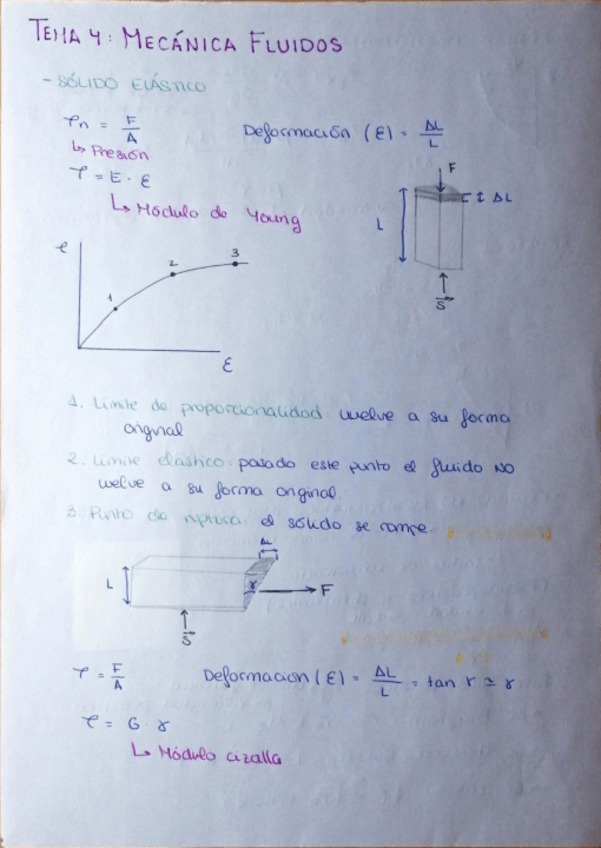 TEMA 4: MECÁNICA FLUIDOS
- SÓLIDO ELÁSTICO
τn = F/A    Deformación (ε) = ΔL/L
↳ Presión
τ = E · ε
↳ Módulo de Young
F
ΔL
L
S
τ
1
2
3
ε
1. Límite de proporcionalidad vuelve a su forma
original
2. Límite elástico: pasado este punto el fluido NO
vuelve a su forma original.
3. Punto de ruptura: el sólido se rompe.
ΔL
L
γ
F
S
τ = F/A    Deformación (ε) = ΔL/L = tan γ ≃ γ
τ = G · γ
↳ Módulo cizalla